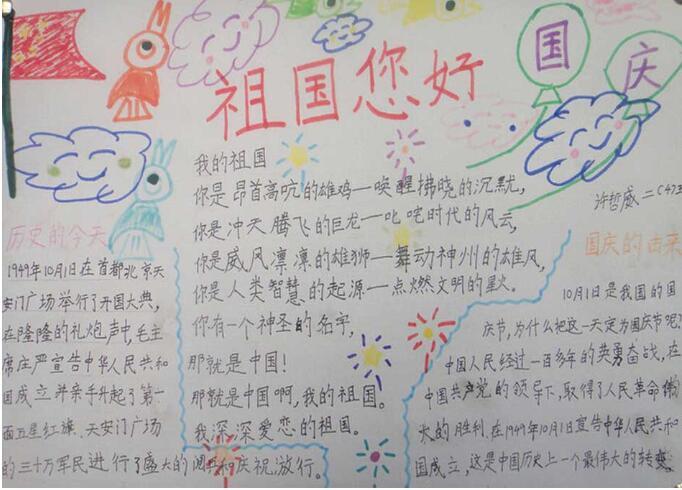 祖国您好
国庆
我的祖国
你是昂首高吭的雄鸡—唤醒拂晓的沉默,
你是冲天腾飞的巨龙—叱咤时代的风云,
你是威风凛凛的雄狮—舞动神州的雄风,
你是人类智慧的起源—点燃文明的星火。
你有一个神圣的名字,
那就是中国!
那就是中国啊,我的祖国。
我深深爱恋的祖国.
历史的今天
1949年10月1日在首都北京天
安门广场举行了开国大典,
在隆隆的礼炮声中,毛主
席庄严宣告中华人民共和
国成立并亲手升起了第一
面五星红旗.天安门广场
的三十万军民进行了盛大的阅兵和庆祝游行。
许哲威二
国庆的由来
10月1日是我国的国
庆节,为什么把这一天定为国庆节呢?
中国人民经过一百多年的英勇奋战,在
中国共产党的领导下,取得了人民革命伟
大的胜利.在1949年10月1日宣告中华人民共和
国成立,这是中国历史上一个最伟大的转变.